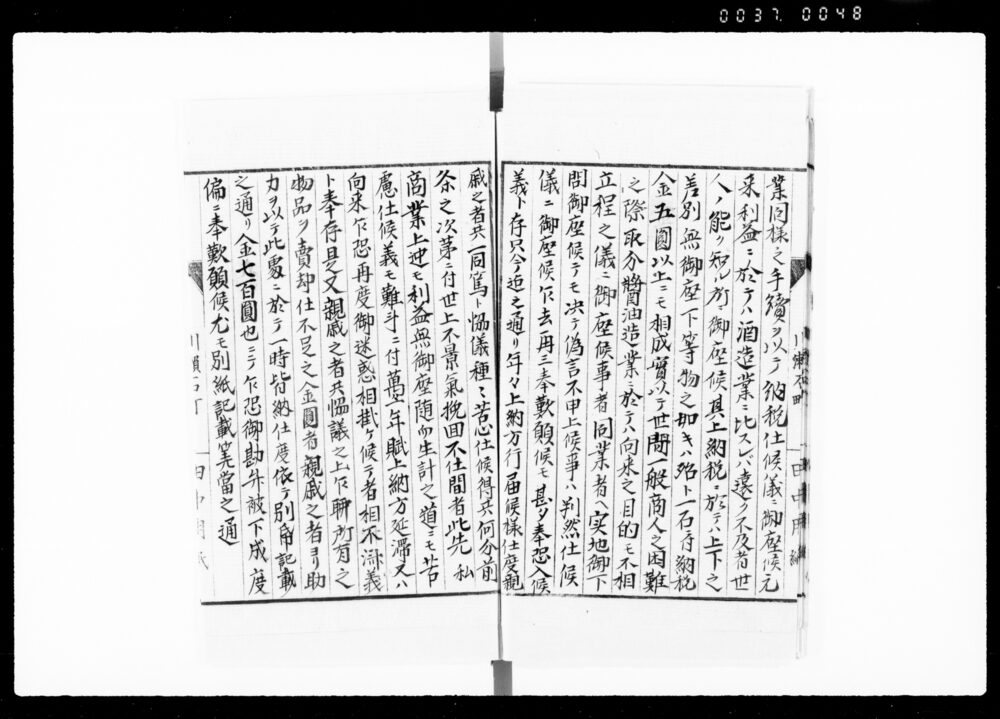 0037 0048
業同様之手續ヲ以テ納税仕候儀ニ御座候元
来利益ニ於テハ酒造業ニ比スレバ遠ク不及者世
人ノ能ク知ル所ニ御座候其上納税ニ於テハ上下之
差別無御座下等物之如キハ殆ト一石ニ付納税
金五圓以上ニモ相成實以テ世間一般商人之困難
之際取分醬油造業ニ於テハ向来之目的モ不相
立程之儀ニ御座候事者同業者ヘ実地御下
問御座候テモ决テ偽言不申上候事ハ判然仕候
儀ニ御座候乍去再三奉歎願候モ甚タ奉恐入候
義ト存只今迠之通リ年々上納方行届候様仕度親
戚之者共一同篤ト協儀種々苦心仕候得共何分前
条之次第ニ付世上不景氣挽回不仕間者此先私
商業上迚モ利益無御座随而生計之道ニモ苦
慮仕候義モ難斗ニ付萬一年賦上納方延滞又ハ
向来乍恐再度御迷惑相掛ケ候テ者相不済義
ト奉存是又親戚之者共協議之上乍聊所有之
物品ヲ賣却仕不足之金圓者親戚之者ヨリ助
力ヲ以テ此處ニ於テ一時皆納仕度依テ別帋記載
之通リ金七百圓也ニテ乍恐御勘弁被下成度
偏ニ奉歎願候尤モ別紙記載筭當之通
川瀬石町
田中用紙